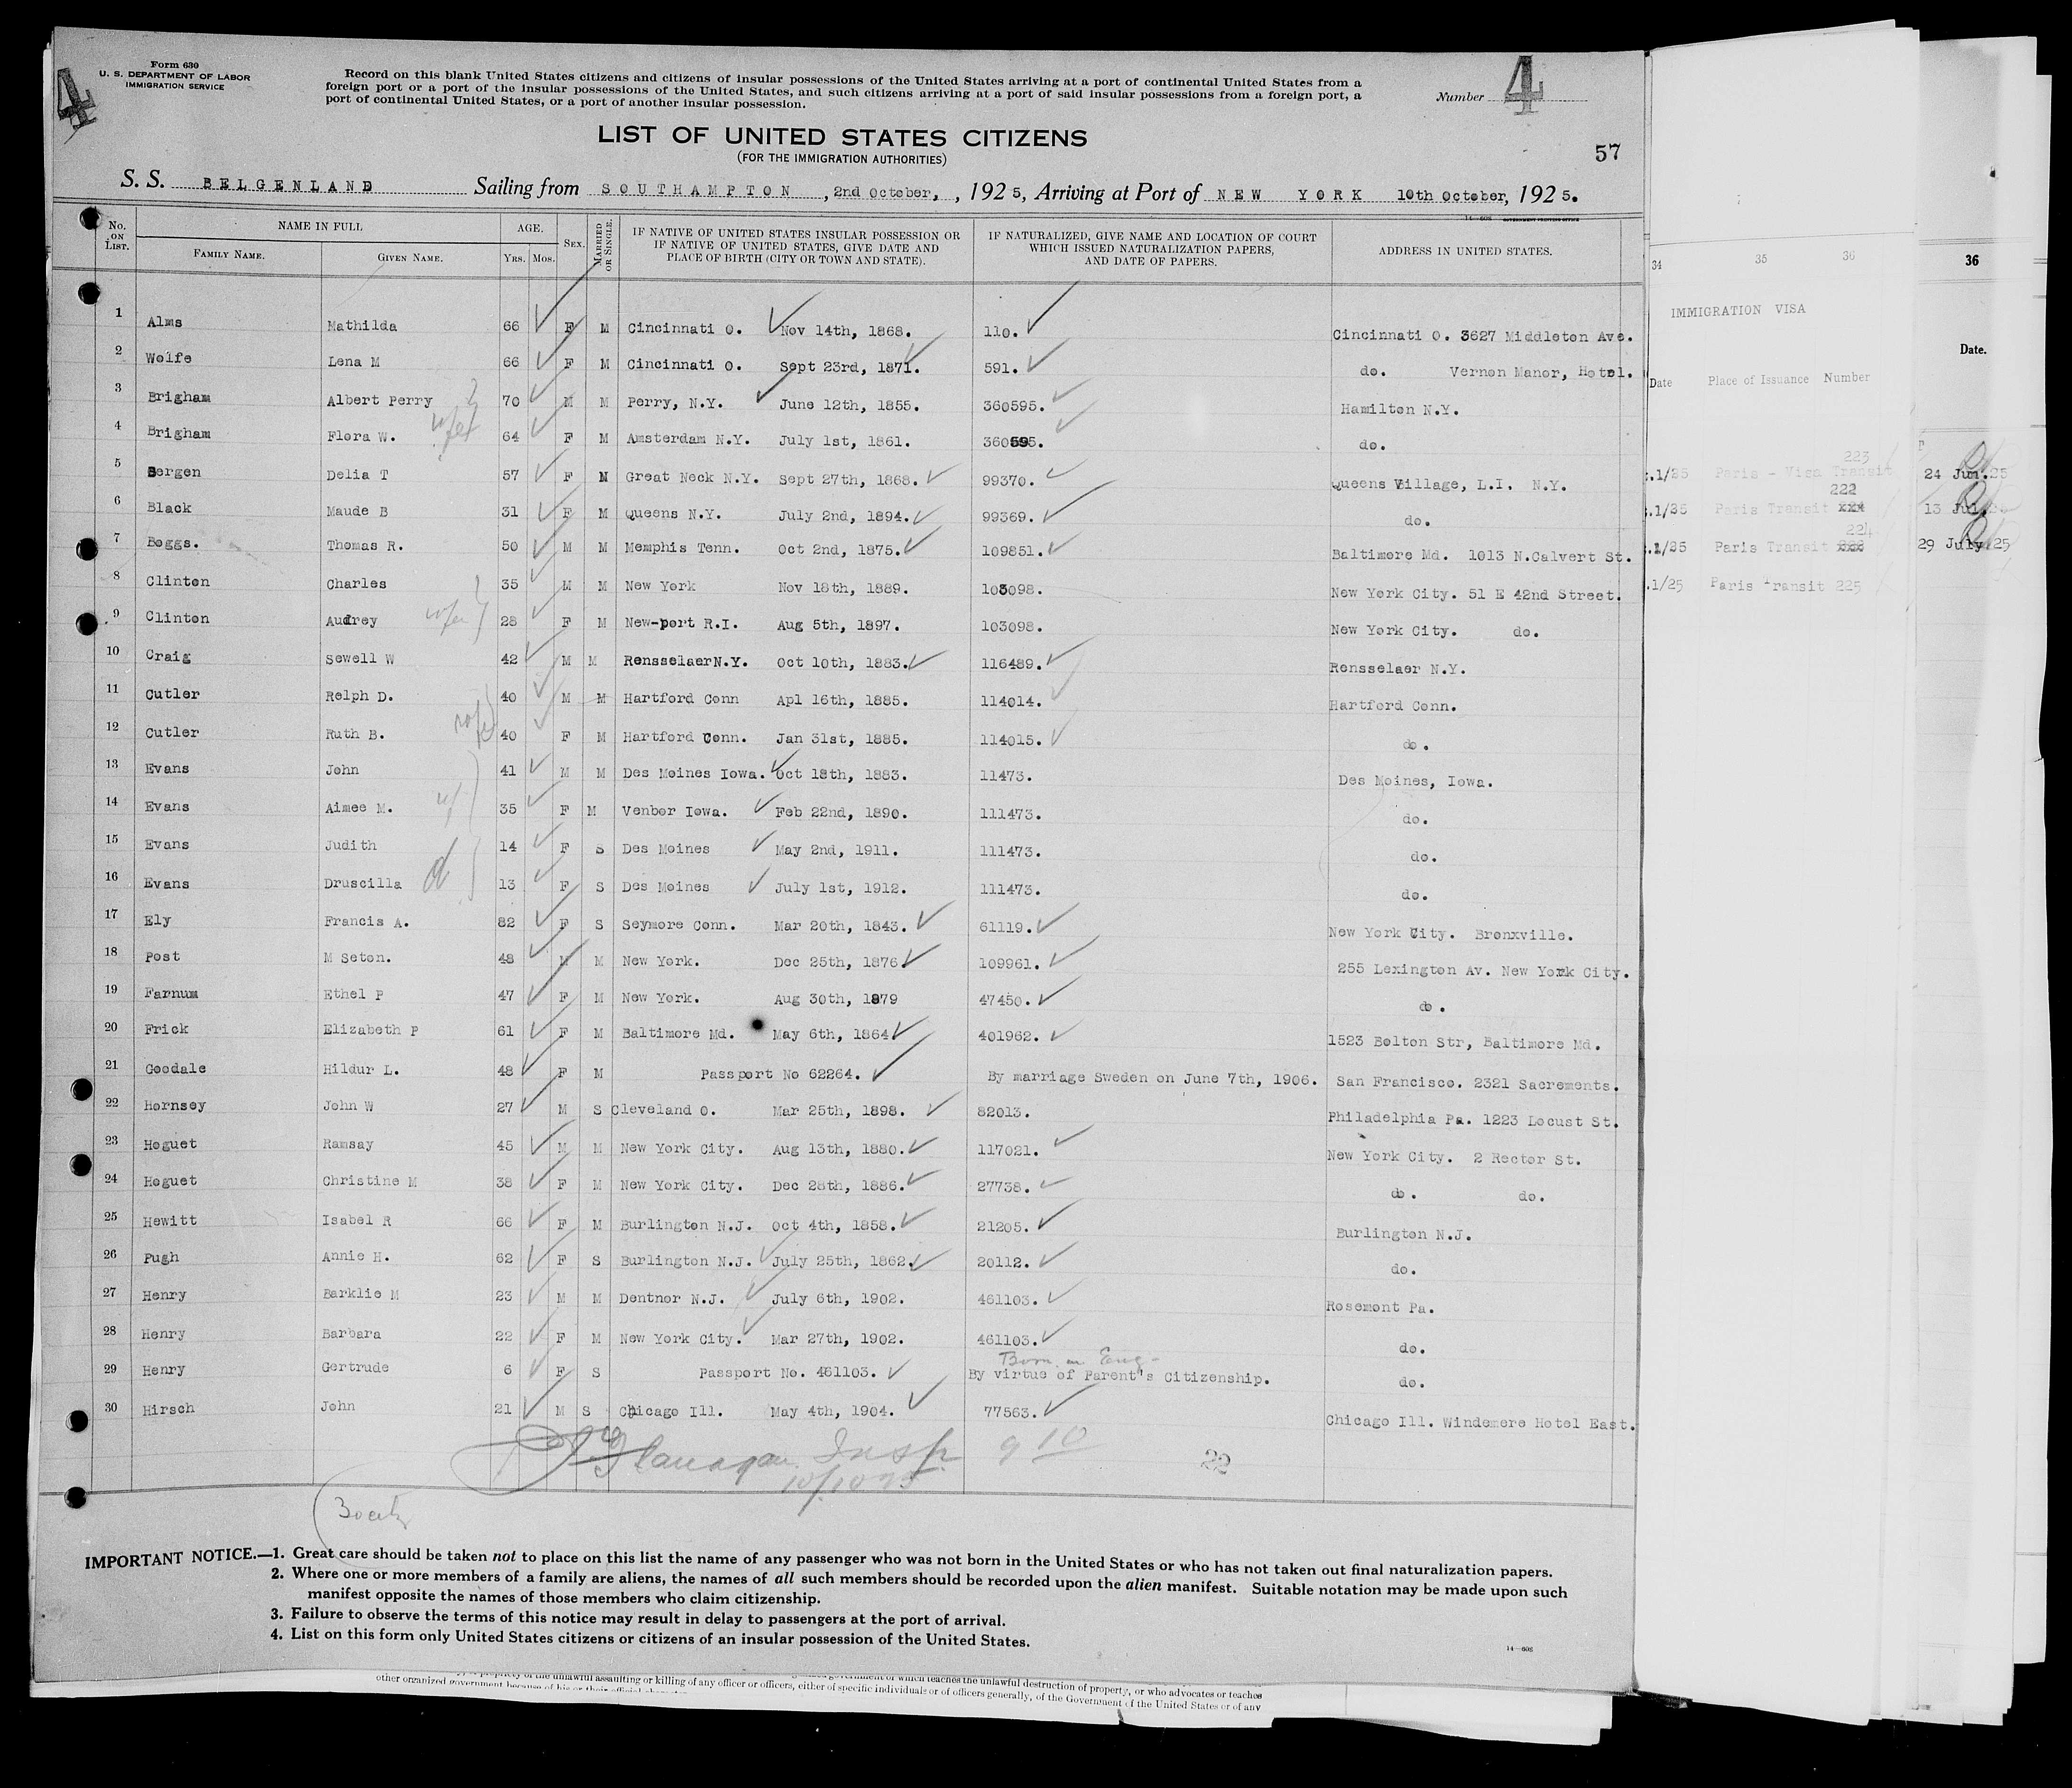 4
Form 630
U. S. DEPARTMENT OF LABOR
IMMIGRATION SERVICE
Record on this blank United States citizens and citizens of insular possessions of the United States arriving at a port of continental United States from a
foreign port or a port of the insular possessions of the United States, and such citizens arriving at a port of said insular possessions from a foreign port, a
port of continental United States, or a port of another insular possession.
Number 4
LIST OF UNITED STATES CITIZENS
(FOR THE IMMIGRATION AUTHORITIES)
57
S. S. BELGENLAND Sailing from SOUTHAMPTON, 2nd October, , 1925, Arriving at Port of NEW YORK 10th October, 1925.
14—608 GOVERNMENT PRINTING OFFICE
No. ON LIST. NAME IN FULL FAMILY NAME. GIVEN NAME. AGE. Yrs. Mos. SEX. MARRIED OR SINGLE. IF NATIVE OF UNITED STATES INSULAR POSSESSION OR IF NATIVE OF UNITED STATES, GIVE DATE AND PLACE OF BIRTH (CITY OR TOWN AND STATE). IF NATURALIZED, GIVE NAME AND LOCATION OF COURT WHICH ISSUED NATURALIZATION PAPERS, AND DATE OF PAPERS. ADDRESS IN UNITED STATES.
1 Alms Mathilda 66 F M Cincinnati O. Nov 14th, 1868. 110. Cincinnati O. 3627 Middleton Ave.
2 Wolfe Lena M 66 F M Cincinnati O. Sept 23rd, 1871. 591. do. Vernon Manor, Hotel.
3 Brigham Albert Perry 70 M M Perry, N.Y. June 12th, 1855. 360595. Hamilton N.Y.
4 Brigham Flora W. wife 64 F M Amsterdam N.Y. July 1st, 1861. 360595. do.
5 Bergen Delia T 57 F M Great Neck N.Y. Sept 27th, 1868. 99370. Queens Village, L.I. N.Y.
6 Black Maude B 31 F M Queens N.Y. July 2nd, 1894. 99369. do.
7 Boggs. Thomas R. 50 M M Memphis Tenn. Oct 2nd, 1875. 109851. Baltimore Md. 1013 N.Calvert St.
8 Clinton Charles 35 M M New York Nov 18th, 1889. 103098. New York City. 51 E 42nd Street.
9 Clinton Audrey wife 28 F M New-port R.I. Aug 5th, 1897. 103098. New York City. do.
10 Craig Sewell W 42 M M RensselaerN.Y. Oct 10th, 1883. 116489. Rensselaer N.Y.
11 Cutler Relph D. 40 M M Hartford Conn Apl 16th, 1885. 114014. Hartford Conn.
12 Cutler Ruth B. 40 F M Hartford Conn. Jan 31st, 1885. 114015. do.
13 Evans John 41 M M Des Moines Iowa. Oct 18th, 1883. 11473. Des Moines, Iowa.
14 Evans Aimee M. 35 F M Venbor Iowa. Feb 22nd, 1890. 111473. do.
15 Evans Judith 14 F S Des Moines May 2nd, 1911. 111473. do.
16 Evans Druscilla d 13 F S Des Moines July 1st, 1912. 111473. do.
17 Ely Francis A. 82 F S Seymore Conn. Mar 20th, 1843. 61119. New York City. Bronxville.
18 Post M Seton. 48 M M New York. Dec 25th, 1876 109961. 255 Lexington Av. New York City.
19 Farnum Ethel P 47 F M New York. Aug 30th, 1879 47450. do.
20 Frick Elizabeth P 61 F M Baltimore Md. May 6th, 1864 401962. 1523 Bolton Str, Baltimore Md.
21 Goodale Hildur L. 48 F M Passport No 62264. By marriage Sweden on June 7th, 1906. San Francisco. 2321 Sacrements.
22 Hornsey John W 27 M S Cleveland O. Mar 25th, 1898. 82013. Philadelphia Pa. 1223 Locust St.
23 Hoguet Ramsay 45 M M New York City. Aug 13th, 1880. 117021. New York City. 2 Rector St.
24 Hoguet Christine M 38 F M New York City. Dec 28th, 1886. 27738. do. do.
25 Hewitt Isabel R 66 F M Burlington N.J. Oct 4th, 1858. 21205. Burlington N.J.
26 Pugh Annie H. 62 F S Burlington N.J. July 25th, 1862. 20112. do.
27 Henry Barklie M 23 M M Dentnor N.J. July 6th, 1902. 461103. Rosemont Pa.
28 Henry Barbara 22 F M New York City. Mar 27th, 1902. 461103. do.
Born in Eng-
29 Henry Gertrude 6 F S Passport No. 461103. By virtue of Parent's Citizenship. do.
30 Hirsch John 21 M S Chicago Ill. May 4th, 1904. 77563. Chicago Ill. Windemere Hotel East.
Flanagan Insp. 9 10 22
10/10 25
IMPORTANT NOTICE.—1. Great care should be taken not to place on this list the name of any passenger who was not born in the United States or who has not taken out final naturalization papers.
2. Where one or more members of a family are aliens, the names of all such members should be recorded upon the alien manifest. Suitable notation may be made upon such
manifest opposite the names of those members who claim citizenship.
3. Failure to observe the terms of this notice may result in delay to passengers at the port of arrival.
4. List on this form only United States citizens or citizens of an insular possession of the United States.
14—608
34 35 36
IMMIGRATION VISA
Date Place of Issuance Number
223
.1/25 Paris - Visa Transit
222
.1/25 Paris Transit xxx
224
.1/25 Paris Transit
.1/25 Paris Transit 225
36
Date.
24 Jun.25
13 Jul.
29 July.25
the unlawful assaulting or killing of any officer or officers, either of specific individuals or of officers generally, of the Government of the United States or of any
other organized government
government or which teaches the unlawful destruction of property, or who advocates or teaches